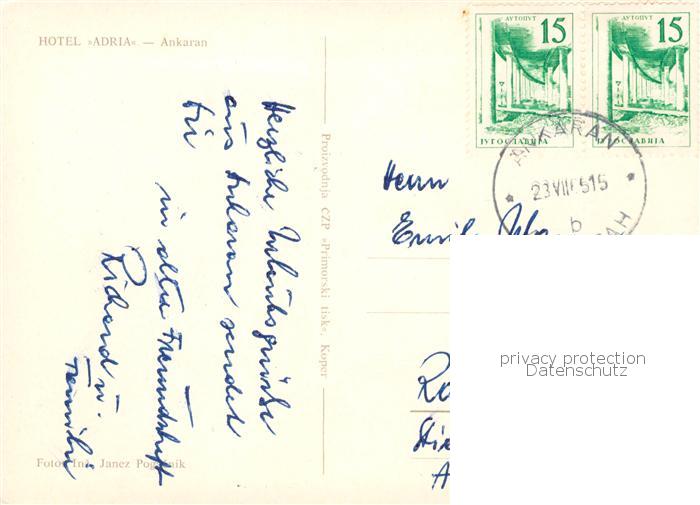 HOTEL »ADRIA« — Ankaran
Herzliche Urlaubsgrüße
aus Ankaran sendet
Dir
in alter Freundschaft
Richard u.
Familie
Foto: Inž. Janez Pogačnik
Proizvodnja ČZP »Primorski tisk«, Koper
АУТОПУТ
15
ЈУГОСЛАВИЈА
АУТОПУТ
15
ЈУГОСЛАВИЈА
ANKARAN
b
Herrn
privacy protection
Datenschutz